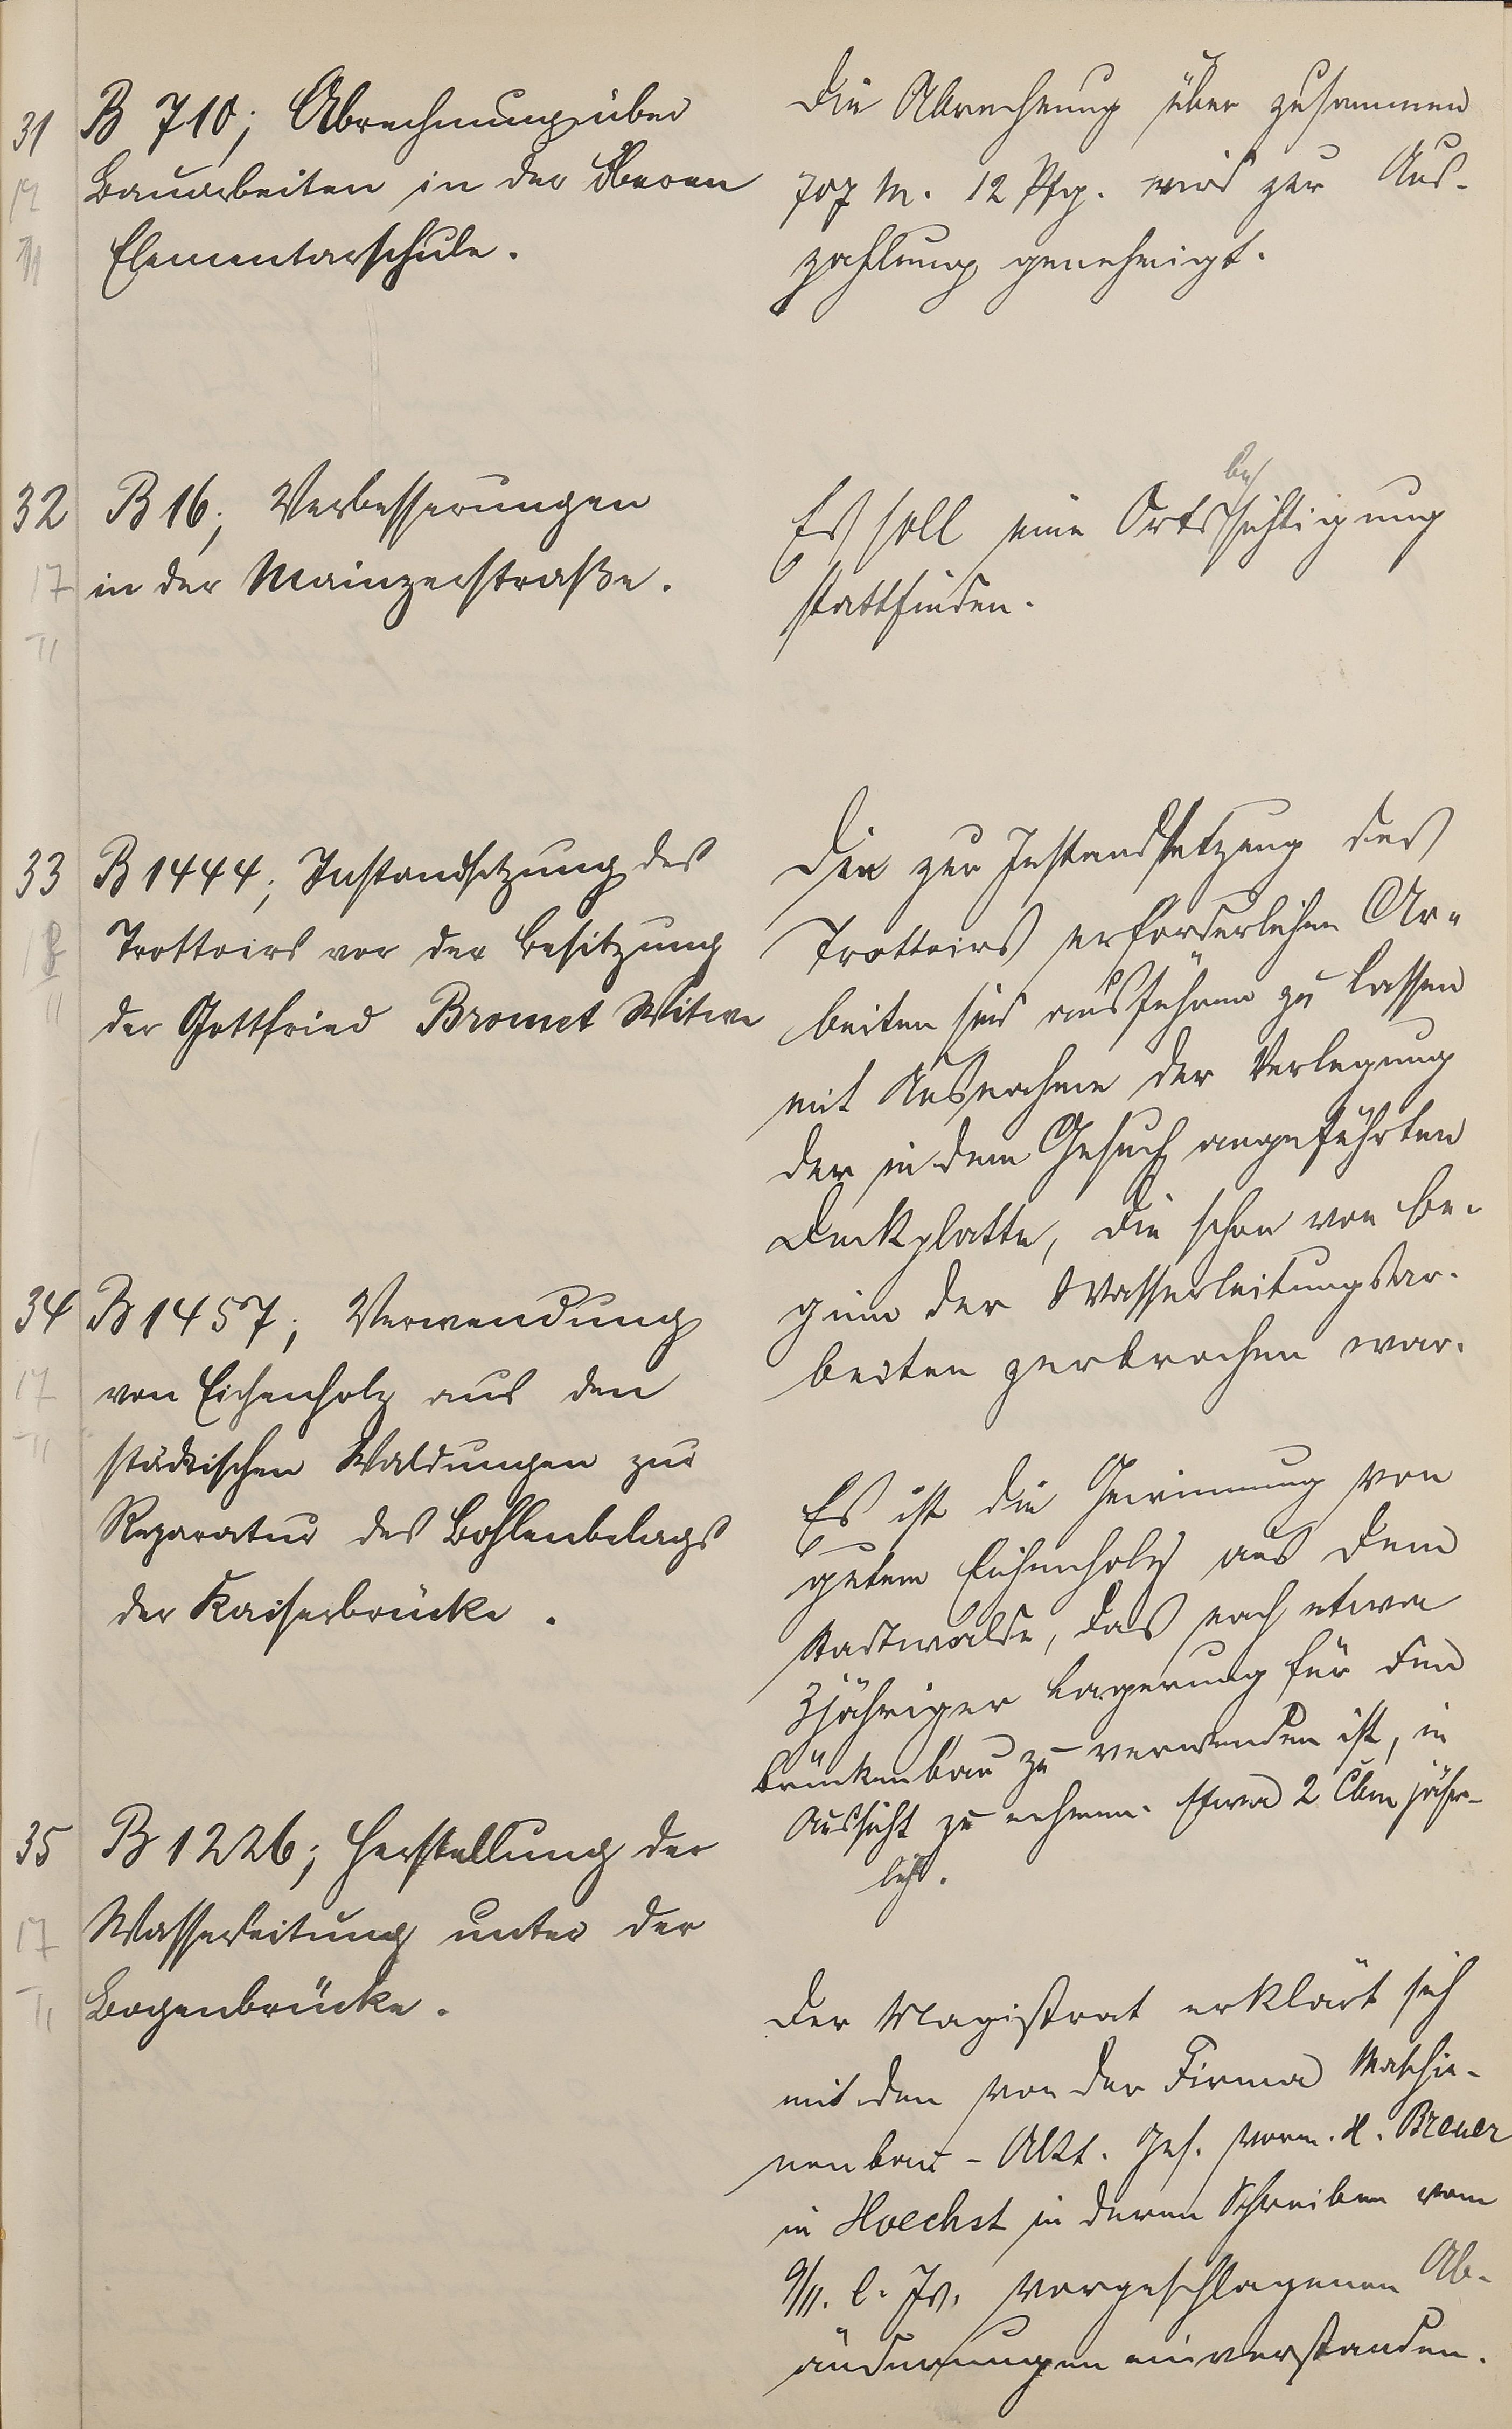 31
B 710; Abrechnung über
Bauarbeiten in der Oberen
Elementarschule.
Die Abrechnung über zusammen
707 M. 12 Pfg. wird zur Aus-
zahlung genehmigt.
32
17
II
B 16; Verbesserungen
in der Mainzerstraße.
Es soll eine Ortsbesichtigung
stattfinden.
33
18
II
B 1444; Instandsetzung des
Trottoirs vor der Besitzung
der Gottfried Bromet Witwe
Die zur Instandsetzung des
Trottoirs erforderlichen Ar-
beiten sind ausführen zu lassen
mit Ausnahme der Verlegung
der in dem Gesuch angeführten
Deckplatte, die schon vor Be-
ginn der Wasserleitungsar-
beiten zerbrochen war.
34
17
II
B 1457; Verwendung
von Eichenholz aus den
städtischen Waldungen zur
Reparatur des Bohlenbelags
der Kaiserbrücke.
Es ist die Gewinnung von
gutem Eichenholz aus dem
Stadtwalde, das nach etwa
3jähriger Lagerung für den
Brückenbau zu verwenden ist, in
Aussicht zu nehmen. Etwa 2 Cbm jähr-
lich.
35
17
II
B 1226; Herstellung der
Wasserleitung unter der
Bogenbrücke.
Der Magistrat erklärt sich
mit den von der Firma Maschi-
nenbau-Akt. Ges. vorm. H. Breuer
in Hoechst in deren Schreiben vom
9/II. l. Js. vorgeschlagenen Ab-
änderungen einverstanden.